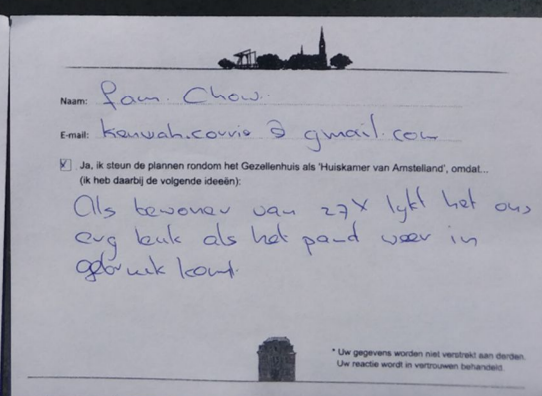 Naam: fam. Chow.
E-mail: kenwah.corrie@gmail.com
Ja, ik steun de plannen rondom het Gezellenhuis als 'Huiskamer van Amstelland', omdat...
(ik heb daarbij de volgende ideeën):
Als bewoner van 27X lykt het ons
erg leuk als het pand weer in
gebruik komt.
* Uw gegevens worden niet verstrekt aan derden.
Uw reactie wordt in vertrouwen behandeld.